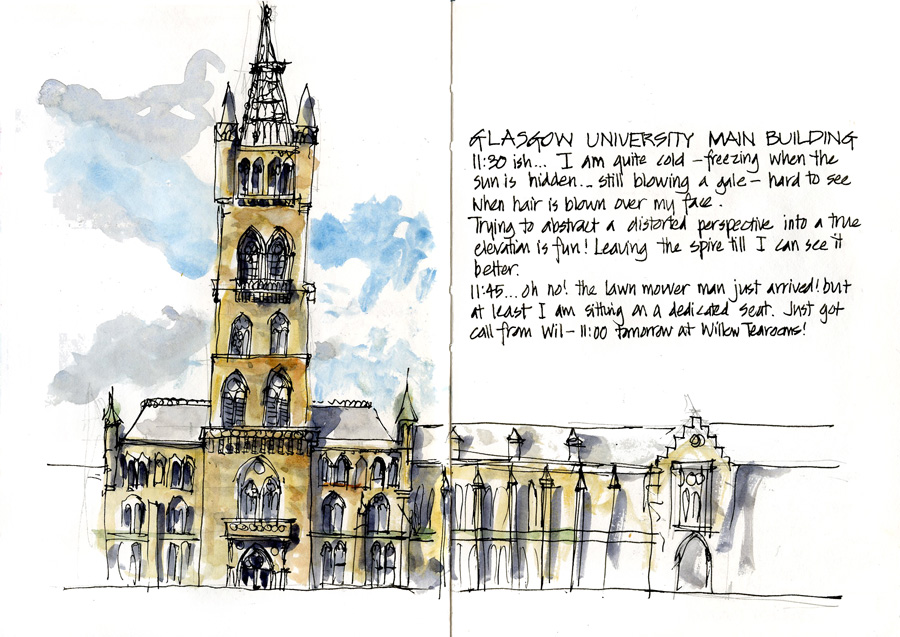 GLASGOW UNIVERSITY MAIN BUILDING
11:30 ish... I am quite cold - freezing when the
sun is hidden... still blowing a gale - hard to see
when hair is blown over my face.
Trying to abstract a distorted perspective into a true
elevation is fun! Leaving the spire till I can see it
better.
11:45...oh no! the lawn mower man just arrived! but
at least I am sitting on a dedicated seat. Just got
call from Wil - 11:00 tomorrow at Willow Tearooms!